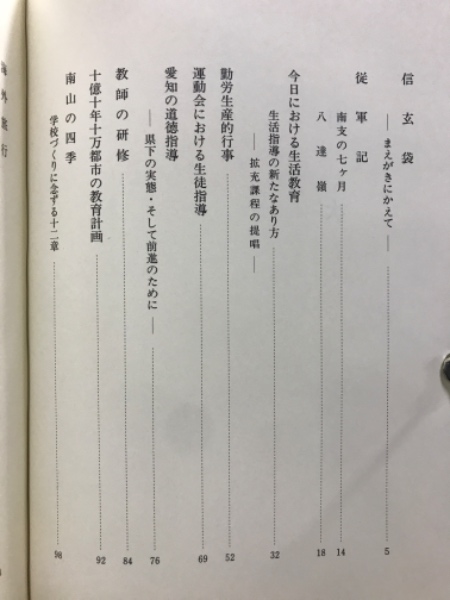 信玄袋
―― まえがきにかえて ―― 5
従軍記
南支の七ヶ月 14
八達嶺 18
今日における生活教育
生活指導の新たなあり方 32
―― 拡充課程の提唱 ――
勤労生産的行事 52
運動会における生徒指導 69
愛知の道徳指導
―― 県下の実態・そして前進のために ―― 76
教師の研修 84
十億十年十万都市の教育計画 92
南山の四季
学校づくりに念ずる十二章 98
海外旅行